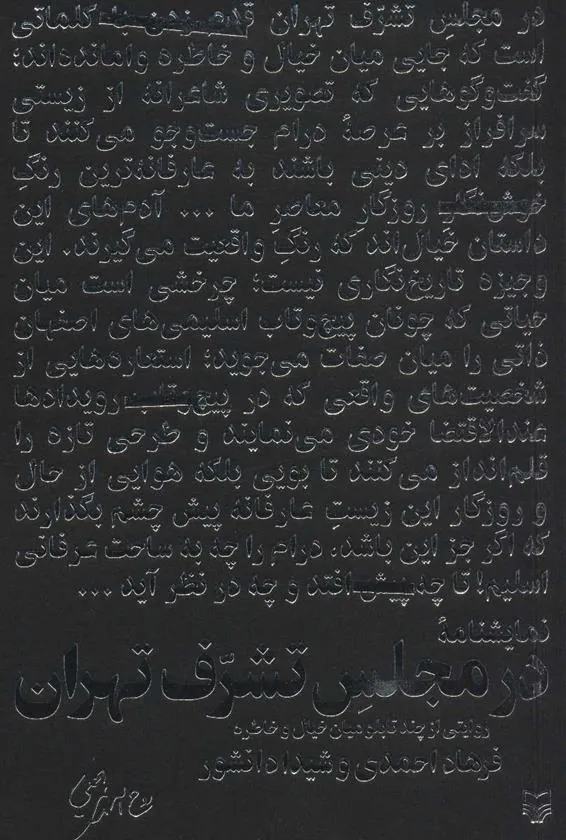 در مجلسِ تشرّف تهران قلم‌زدن کلماتی
است که جایی میان خیال و خاطره وامانده‌اند؛
گفت‌وگوهایی که تصویری شاعرانه از زیستی
سرافراز بر عرصهٔ درام جست‌وجو می‌کنند تا
بلکه ادای دینی باشند به عارفانه‌ترین رنگِ
روزگارِ معاصرِ ما ... آدم‌های این
داستان خیال‌اند که رنگِ واقعیت می‌گیرند. این
وجیزه تاریخ‌نگاری نیست؛ چرخشی است میان
حیاتی که چونان پیچ‌وتاب اسلیمی‌های اصفهان
ذاتی را میان صفات می‌جوید؛ استعاره‌هایی از
شخصیت‌های واقعی که در رویدادها
عندالاقتضا خودی می‌نمایند و طرحی تازه را
قلم‌انداز می‌کنند تا بویی بلکه هوایی از حال
و روزگار این زیستِ عارفانه پیش چشم بگذارند
که اگر جز این باشد، درام را چه به ساحت عرفانی
اسلیم! تا چه پیش افتد و چه در نظر آید ...
نمایشنامهٔ
در مجلسِ تشرّف تهران
روایتی از چند تابلو میان خیال و خاطره
فرهاد احمدی و شیدا دانشور